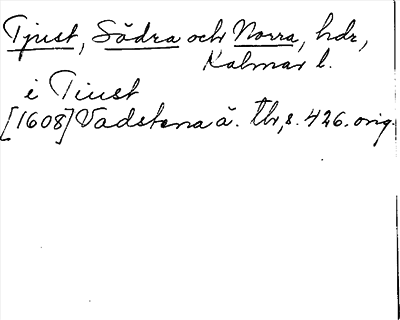 Tjust, Södra och Norra, hdr,
Kalmar l.
i Tiust
[1608] Vadstena ä. tb, s. 426. orig.